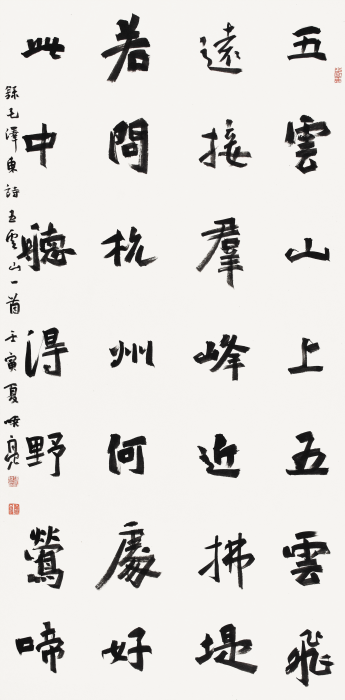 五雲山上五雲飛
遠接羣峰近拂堤
若問杭州何處好
此中聽得野鶯啼
錄毛澤東詩五雲山一首 壬寅夏